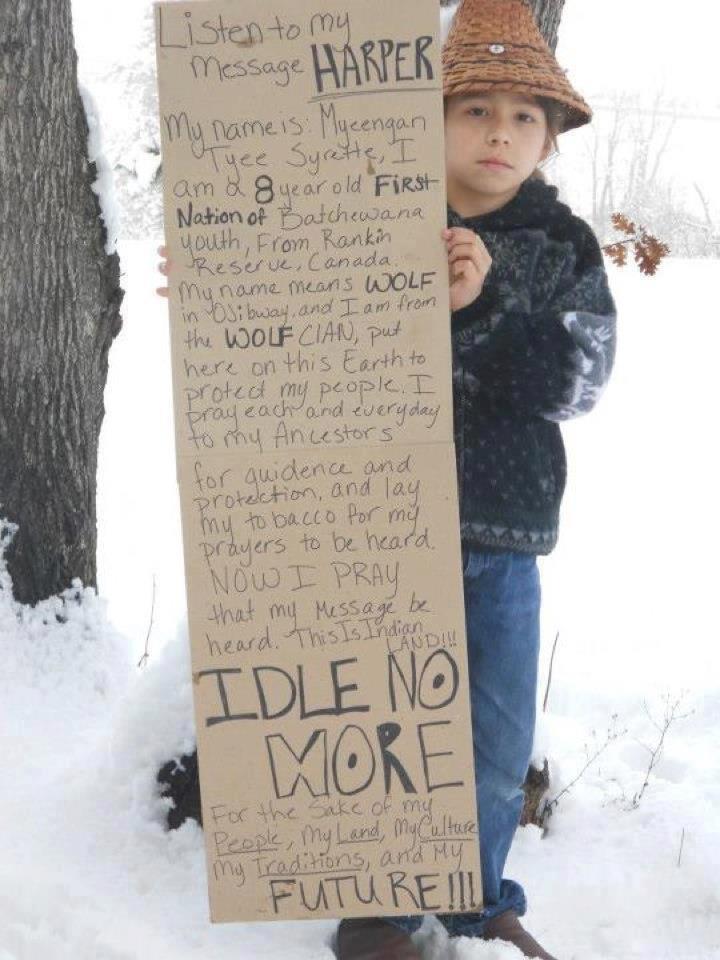 Listen to my
Message HARPER
My name is: Myeengan
Tyee Syrette, I
am a 8 year old First
Nation of Batchewana
youth, From Rankin
Reserve, Canada.
My name means WOLF
in Ojibway, and I am from
the WOLF CLAN, put
here on this Earth to
protect my people. I
pray each and everyday
to my Ancestors
for guidence and
protection, and lay
my tobacco for my
prayers to be heard.
NOW I PRAY
that my Message be
heard. This Is Indian
LAND!!!
IDLE NO
MORE
For the Sake of my
People, My Land, My Culture
My Traditions, and My
FUTURE!!!